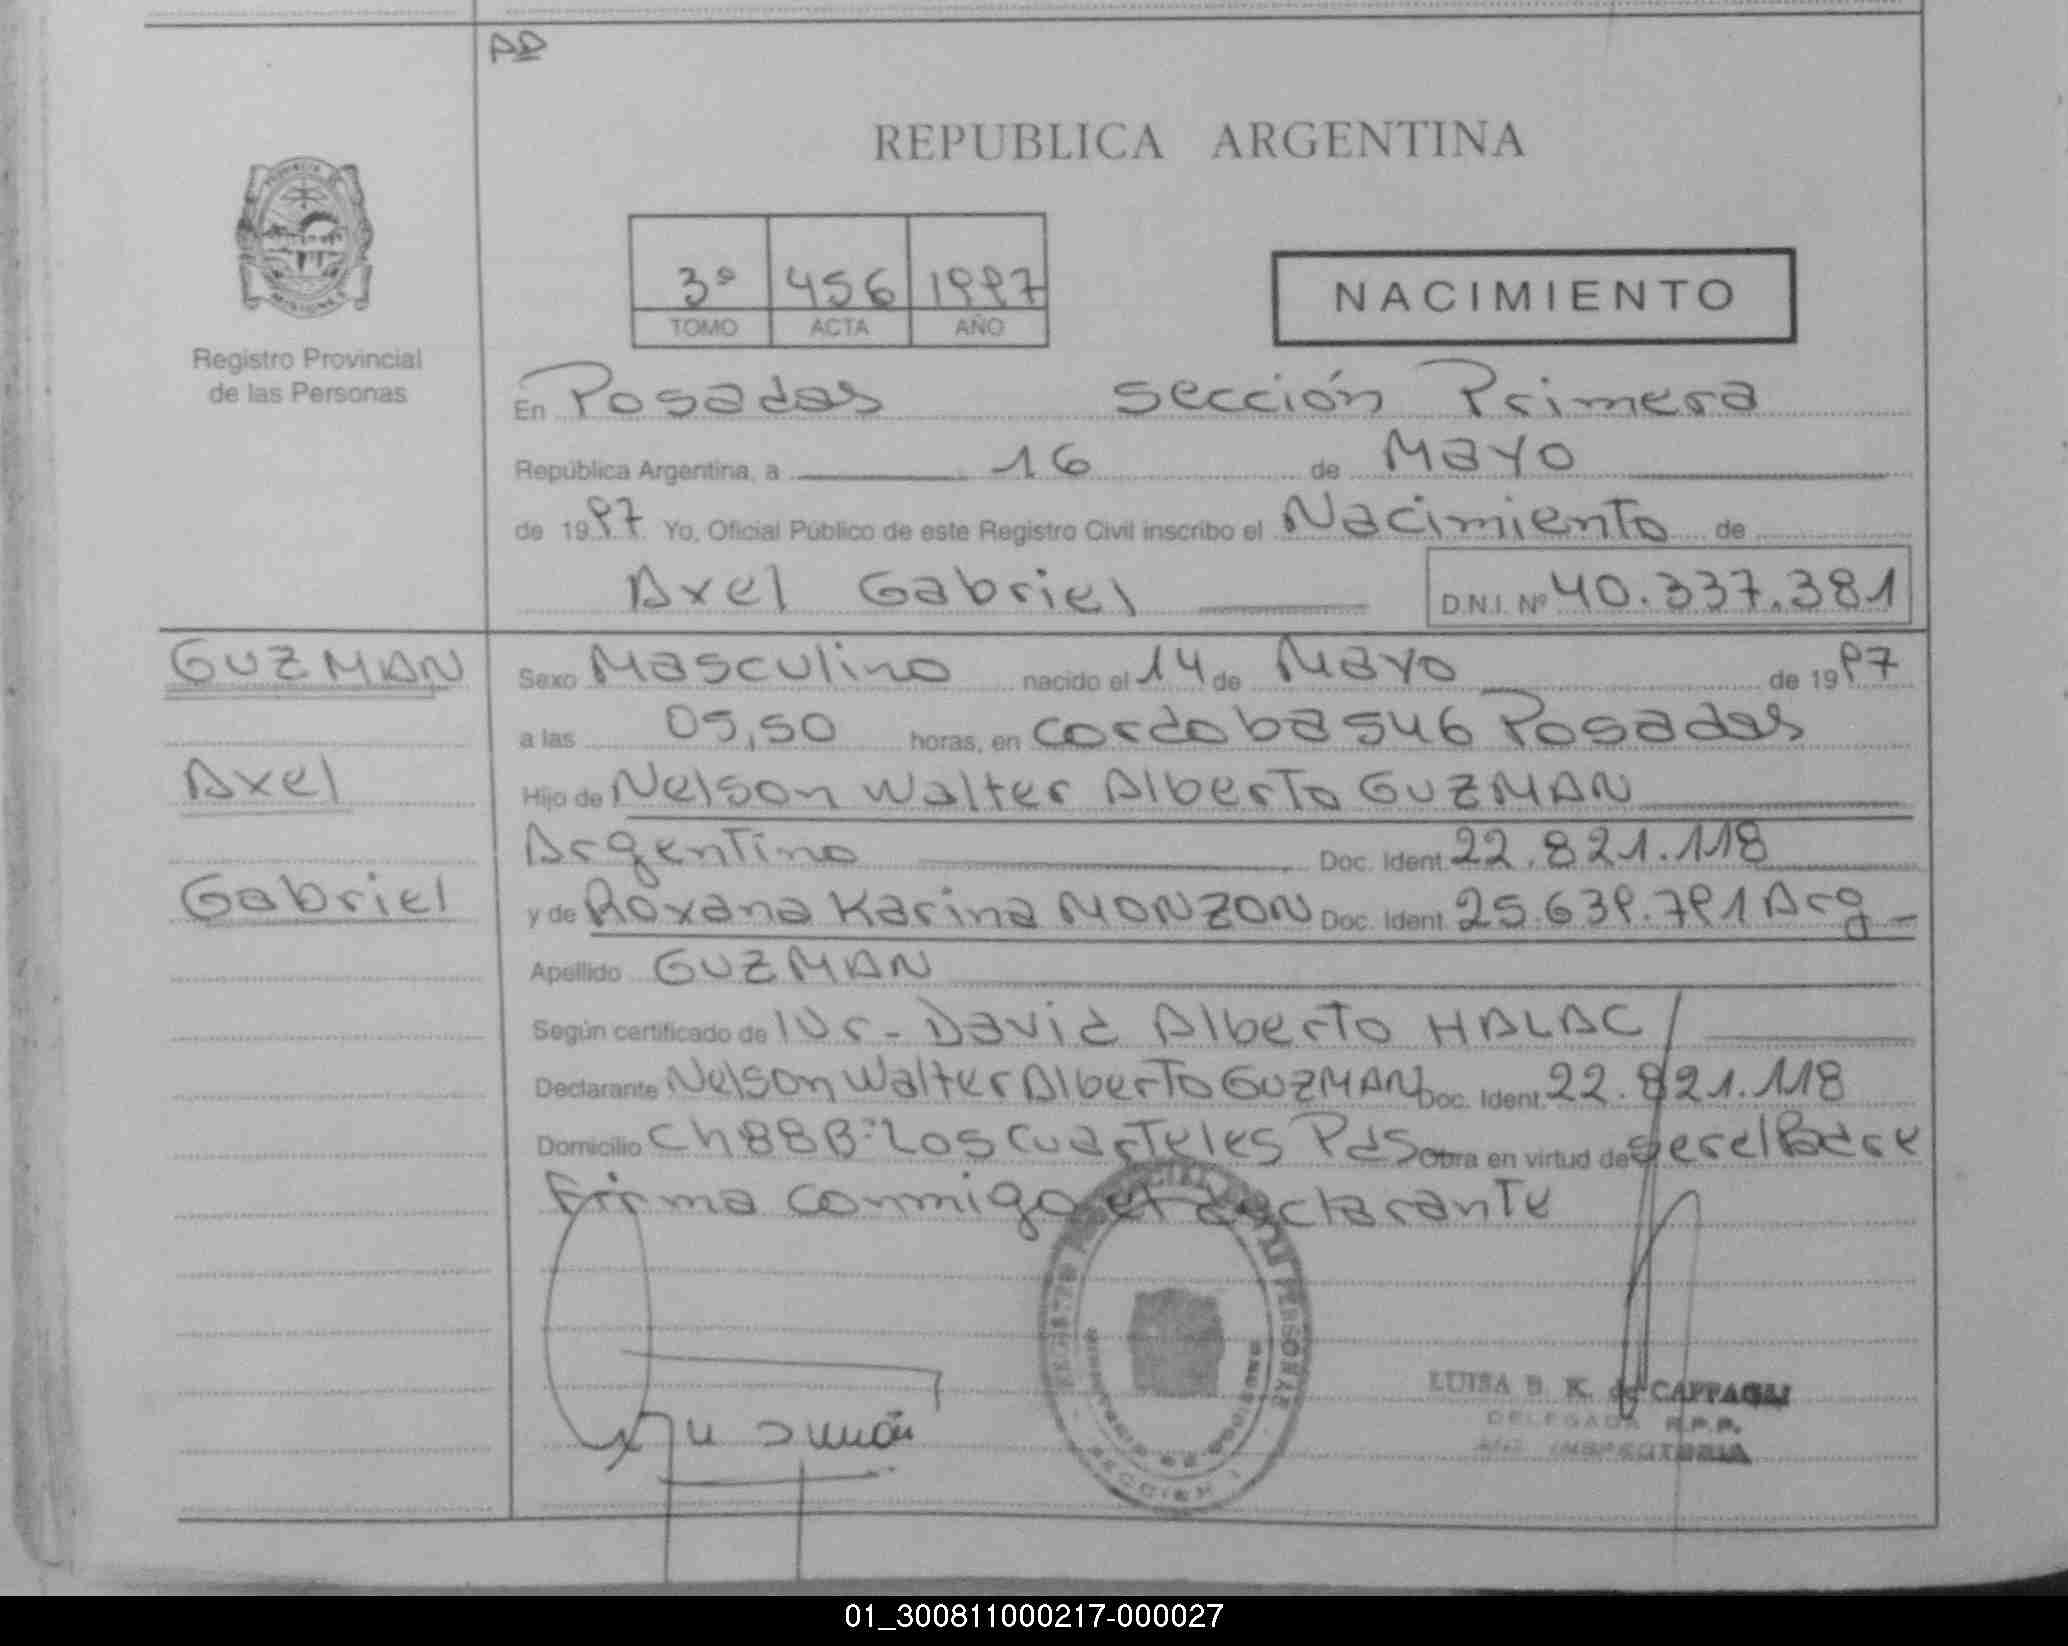 REPUBLICA ARGENTINA
3º 456 1997
TOMO ACTA AÑO
NACIMIENTO
Registro Provincial
de las Personas
En Posadas sección Primera
República Argentina, a 16 de Mayo
de 1997 Yo, Oficial Público de este Registro Civil inscribo el Nacimiento de
Axel Gabriel D.N.I. Nº 40.337.381
GUZMAN
Axel
Gabriel
Sexo Masculino nacido el 14 de Mayo de 1997
a las 05,50 horas, en cordoba 546 Posadas
Hijo de Nelson Walter Alberto GUZMAN
Argentino Doc. Ident. 22.821.118
y de Roxana Karina MONZON Doc. Ident. 25.639.791 Arg
Apellido GUZMAN
Según certificado de David Alberto HALAC
Declarante Nelson Walter Alberto GUZMAN Doc. Ident. 22.821.118
Domicilio Ch 88 Bº Los Cuarteles Pds Obra en virtud de ser el Padre
Firma conmigo el declarante
LUISA B. K. de CAPPAGLI
DELEGADA R.P.P.
01_300811000217-000027